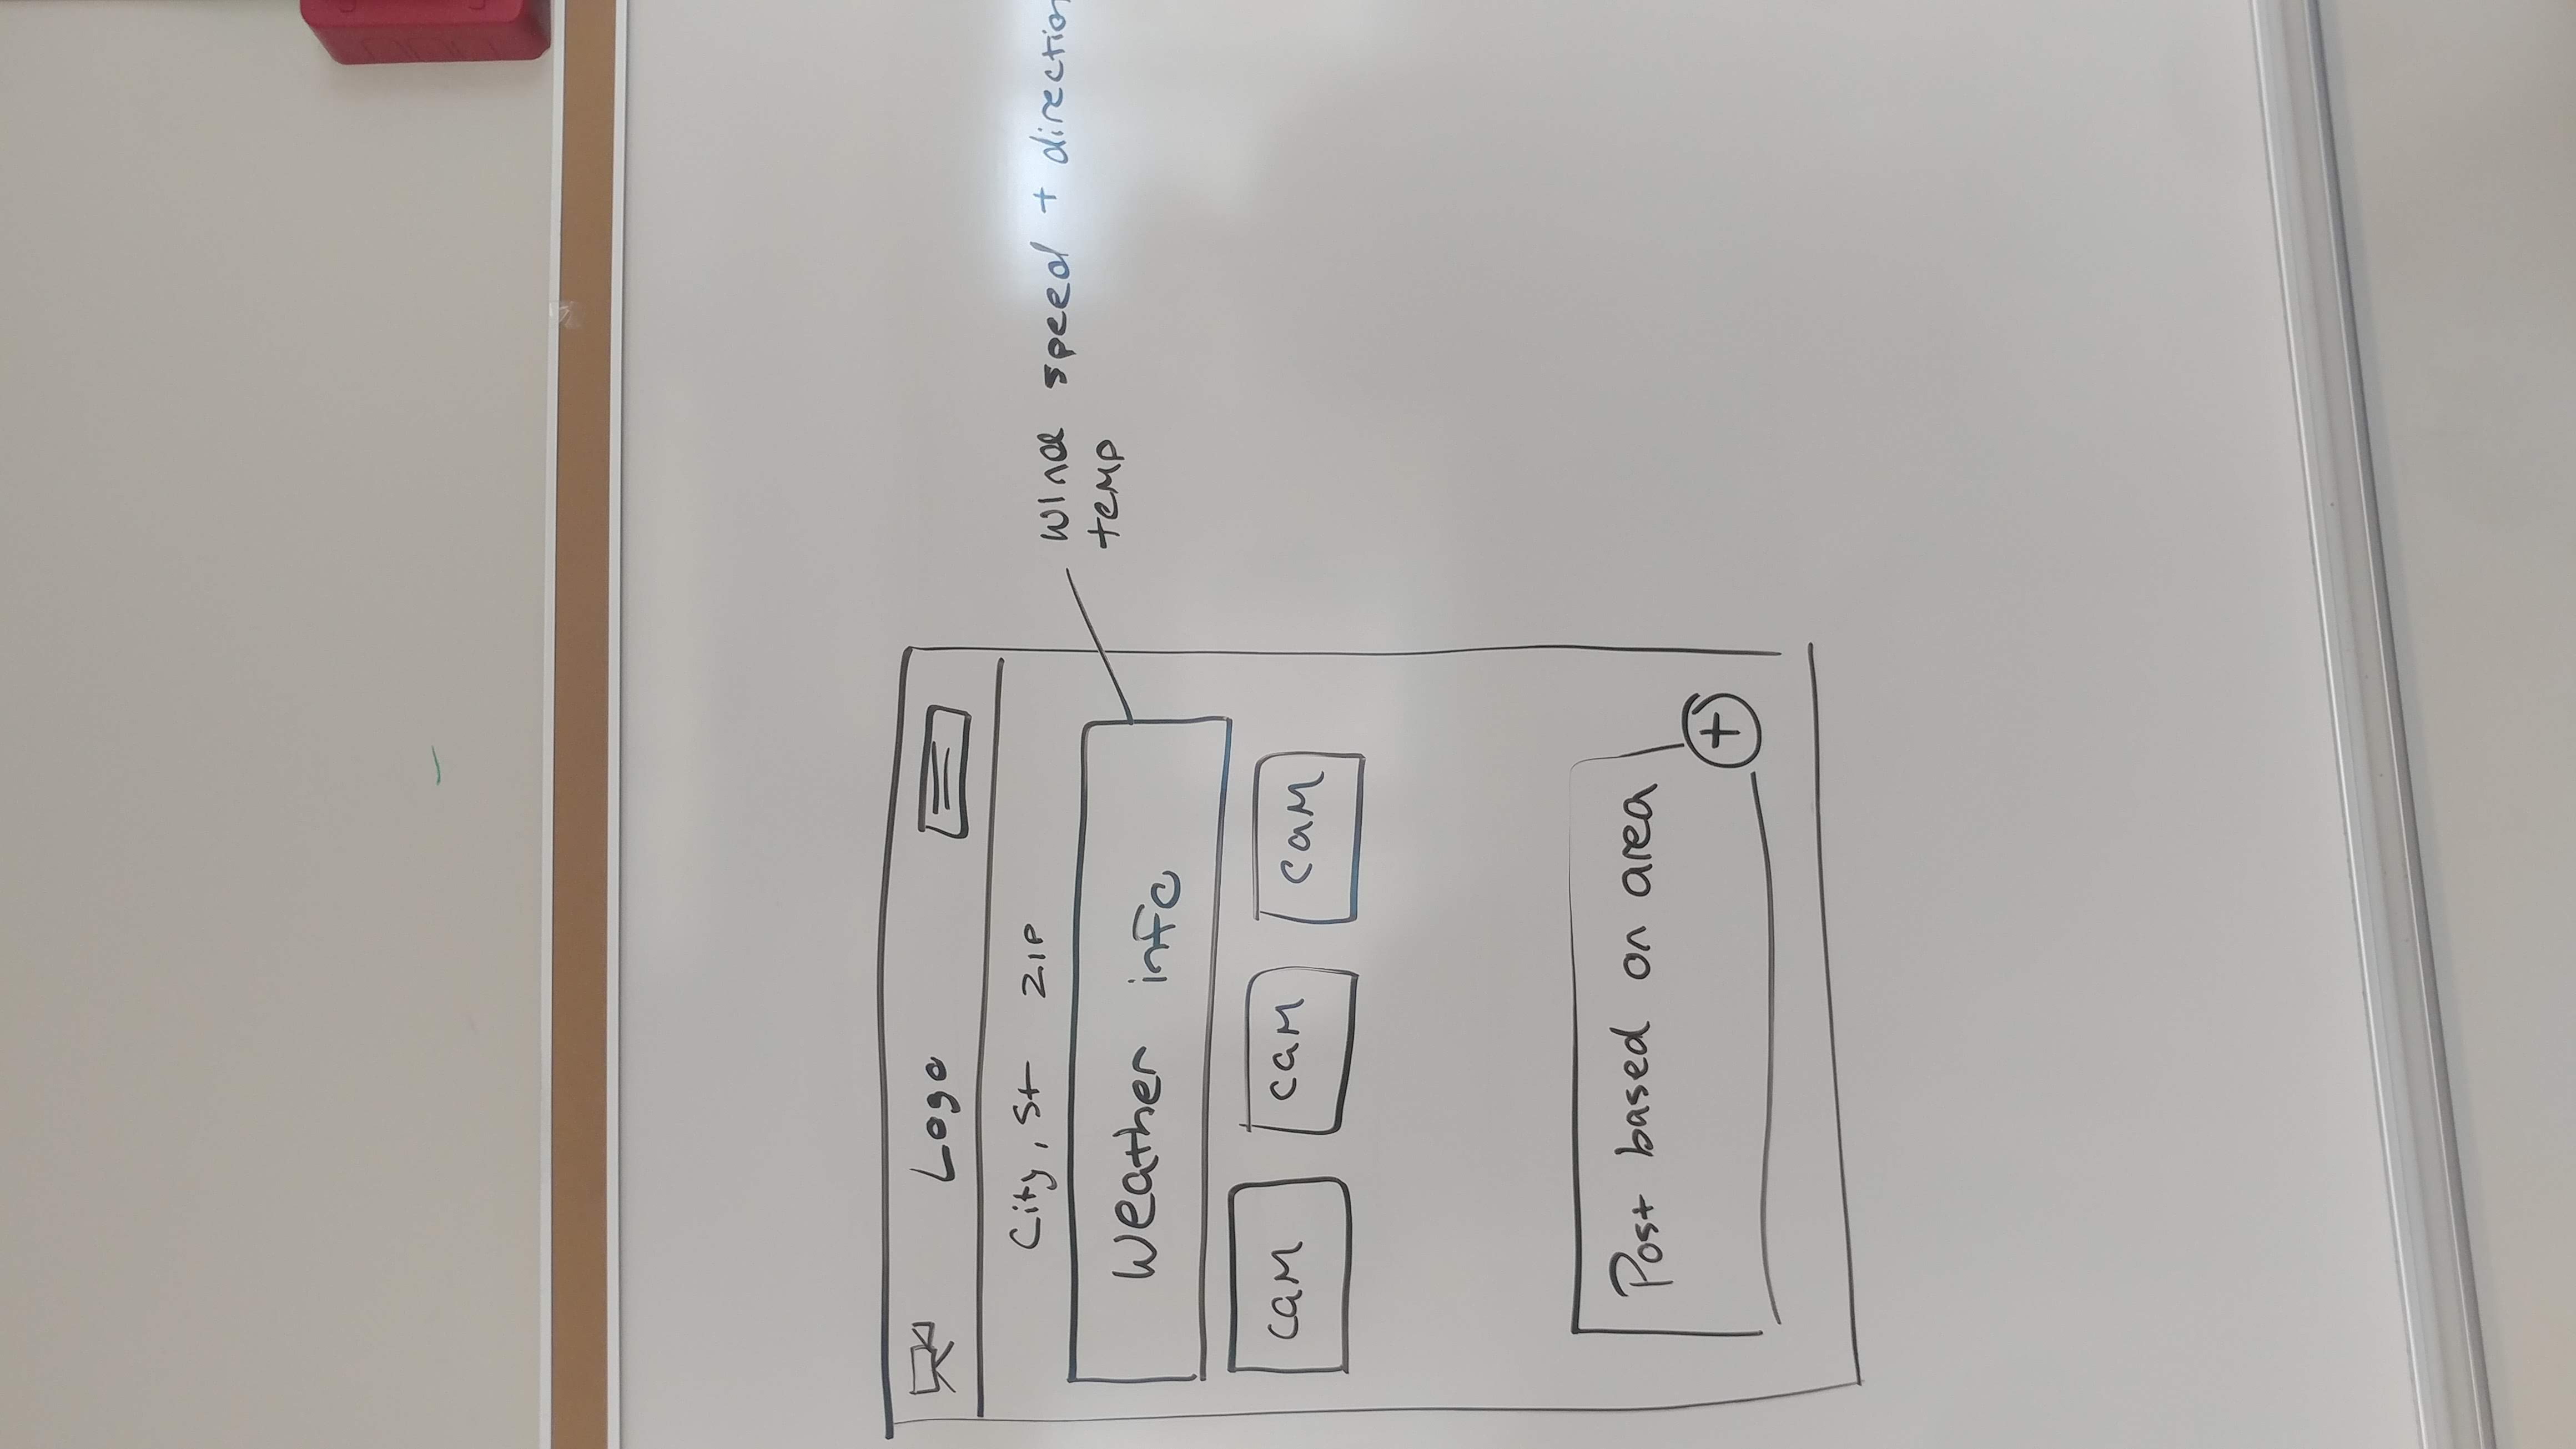 Logo
City, St ZIP
Weather info
wind speed + direction
temp
cam cam cam
Post based on area
+